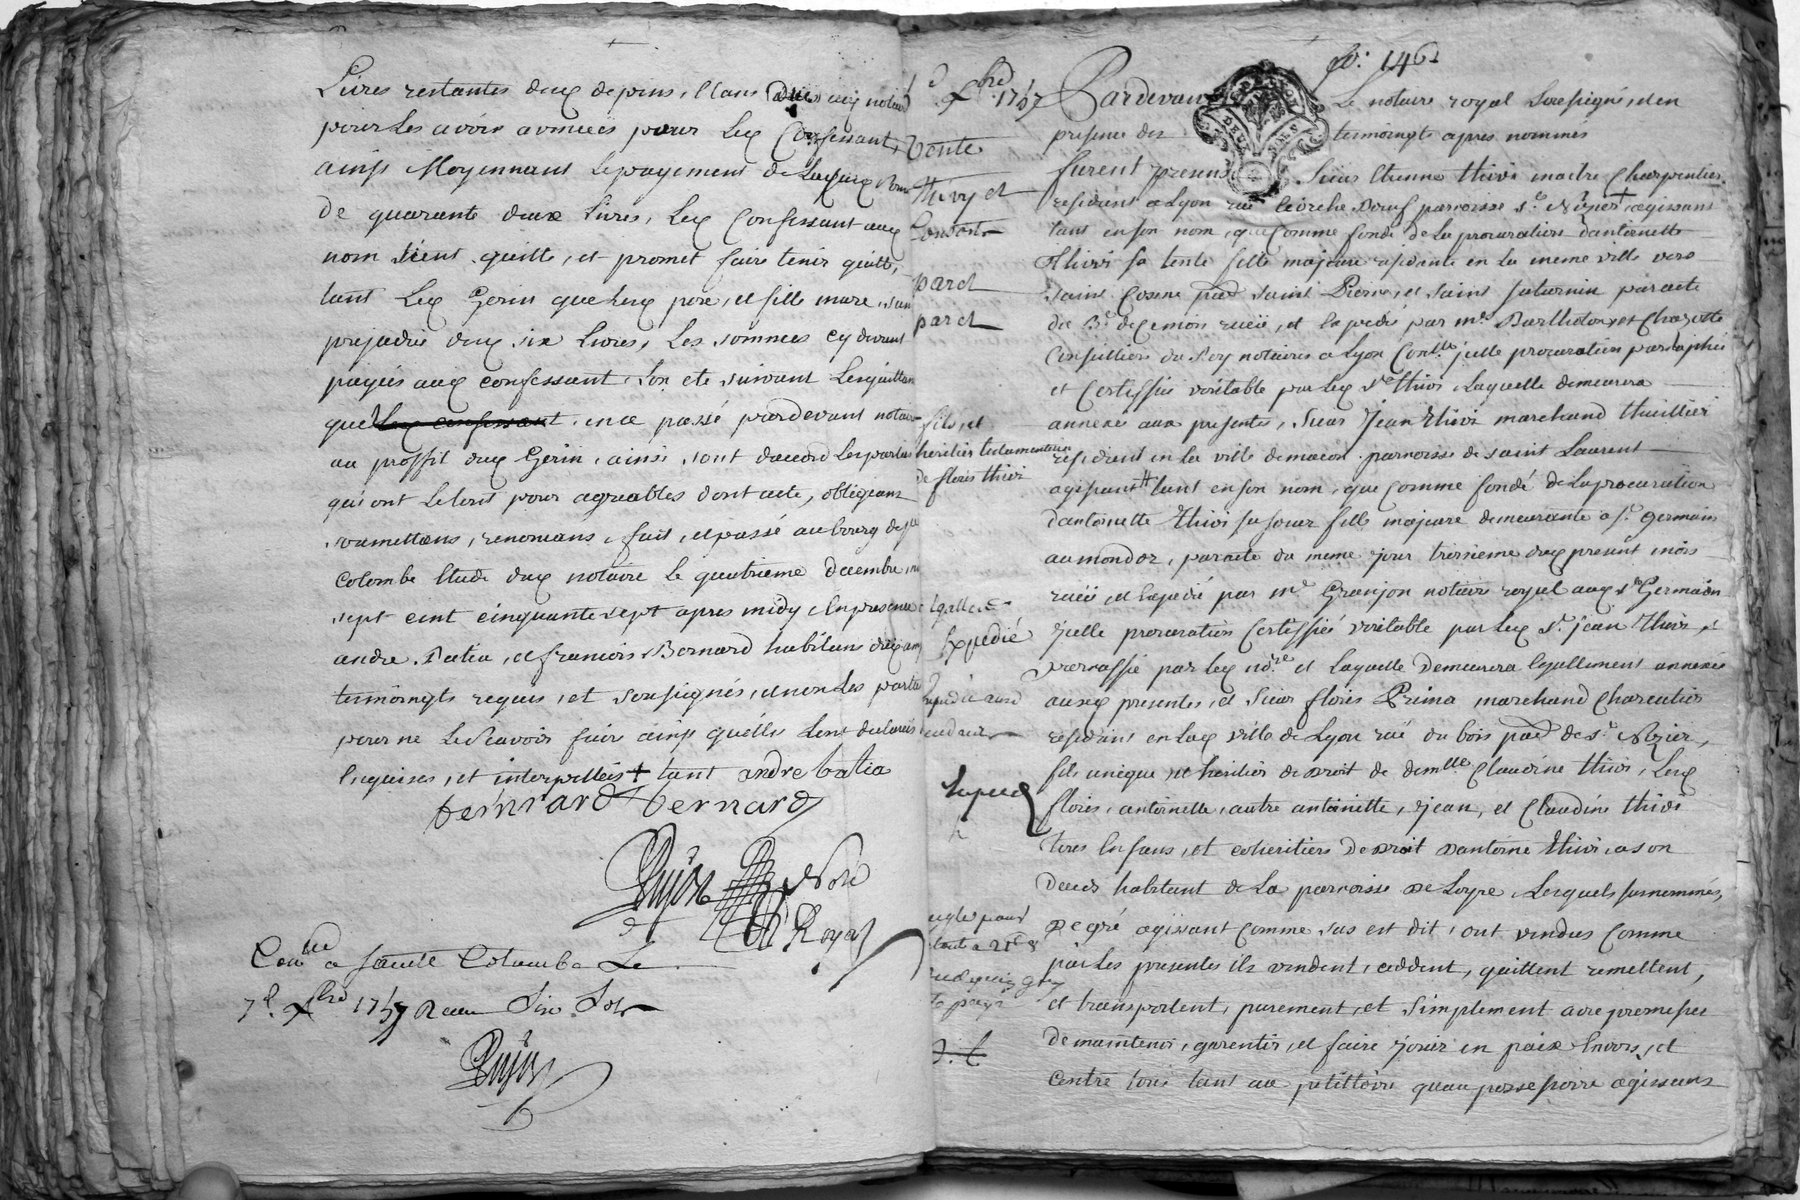 Livres restantes dux depens, et aux notaire
pour les avoir avances pour lex Confessant,
ainsy Moyennant le payement de
de quarante deux livres, lex Confessant aux
nom tient quitte, et promet faire tenir quitte,
tant lex Gerin que lux pere, et fille mure, sans
prejudice dux six livres, les sommes cy devant
payées aux confessant, ont ete suivant les quittances
quel lex confessant en a passé pardevant notaire
au proffit dux Gerin, ainsi sont daccord les parties
qui ont le tout pour agreables dont acte, obligeans
soumettans, renonceans, fait, et passé au bourg de ste
Colombe Etude dux notaire le quatrieme decembre mil
sept cent cinquante sept apres midy, En presence
andre Patia, et francois Bernard habitans dux
temoingts requis, et soussignés, et non les parties
pour ne le scavoir faire ainsy quelles l'ont declarées
enquises, et interpellées + tant andre batia
bernard bernard
Pujon Nore
Royal
Conlle a sainte Colombe Le
7e. Xbre 1757 Receu Six Sols
Pujon
fo. 146
Xbre 1757
Vente
Thivy et
Consorts
par et
par et
fils, et
heritier testamentaire
de floris thivi
Expedié
Pardevant Le notaire royal soussigné, et en
presence des temoingts apres nommes
furent presens Sieur Etienne thivi maitre Charpentier
residant a Lyon rue Ecorche Boeuf parroisse St. Nizier + agissant
tant en son nom, que comme fondé de la procuration dantoinette
thivi sa tente fille majeure residante en la meme ville vers
saint Cosme pard saint Pierre, et saint saturnin par acte
du 3e dux mois recüe, et expedié par mes Bartholony et Chazotte
Conseilliers du Roy notaires a Lyon Conlle jcelle procuration paraphée
et Certiffiée veritable par lex Sr thivi, laquelle demeurera
annexée aux presentes, Sieur Jean thivi marchand thuillier
residant en la ville de macon parroisse de saint Laurent
agissant # tant en son nom, que comme fondé de la procuration
dantoinette thivi sa soeur fille majeure demeurante a St. germain
au mondor, par acte du meme jour troisieme dux present mois
recüe, et expedié par me Granjon notaire royal aux St Germain
jcelle procuration Certiffiée veritable par lex Sr. jean thivi,
par lex nore et laquelle demeurera Egallement annexée
aux presentes, et Sieur floris Prima marchand Charcutier
residant en lax ville de Lyon rüe du bois pard de St. Nizier,
fils unique, et heritier de droit de demlle Claudine thivi, lex
floris, antoinette, autre antoinette, jean, et Claudine thivi
tous Enfans, et coheritiers de droit dantoine thivi, a son
deceds habitant de la parroisse de Loyre, Lesquels surnommés,
de gré agissant comme sus est dit, ont vendus comme
par les presentes ils vendent, ceddent, quittent, remettent,
et transportent, purement, et simplement avec promesses
de maintenir, garentir, et faire joüir en paix Envers, et
contre tous tant au petittoire quau possessoire agissans